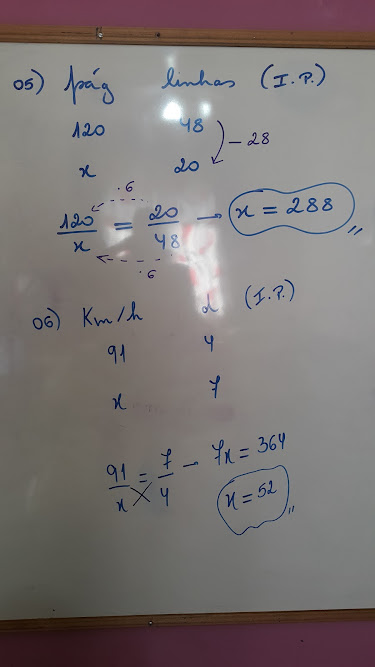 05) pág linhas (I.P.)
120 48
— 28
x 20
·6
120/x = 20/48 → x = 288
·6
06) Km/h d (I.P.)
91 4
x 7
91/x = 7/4 → 7x = 364
x = 52